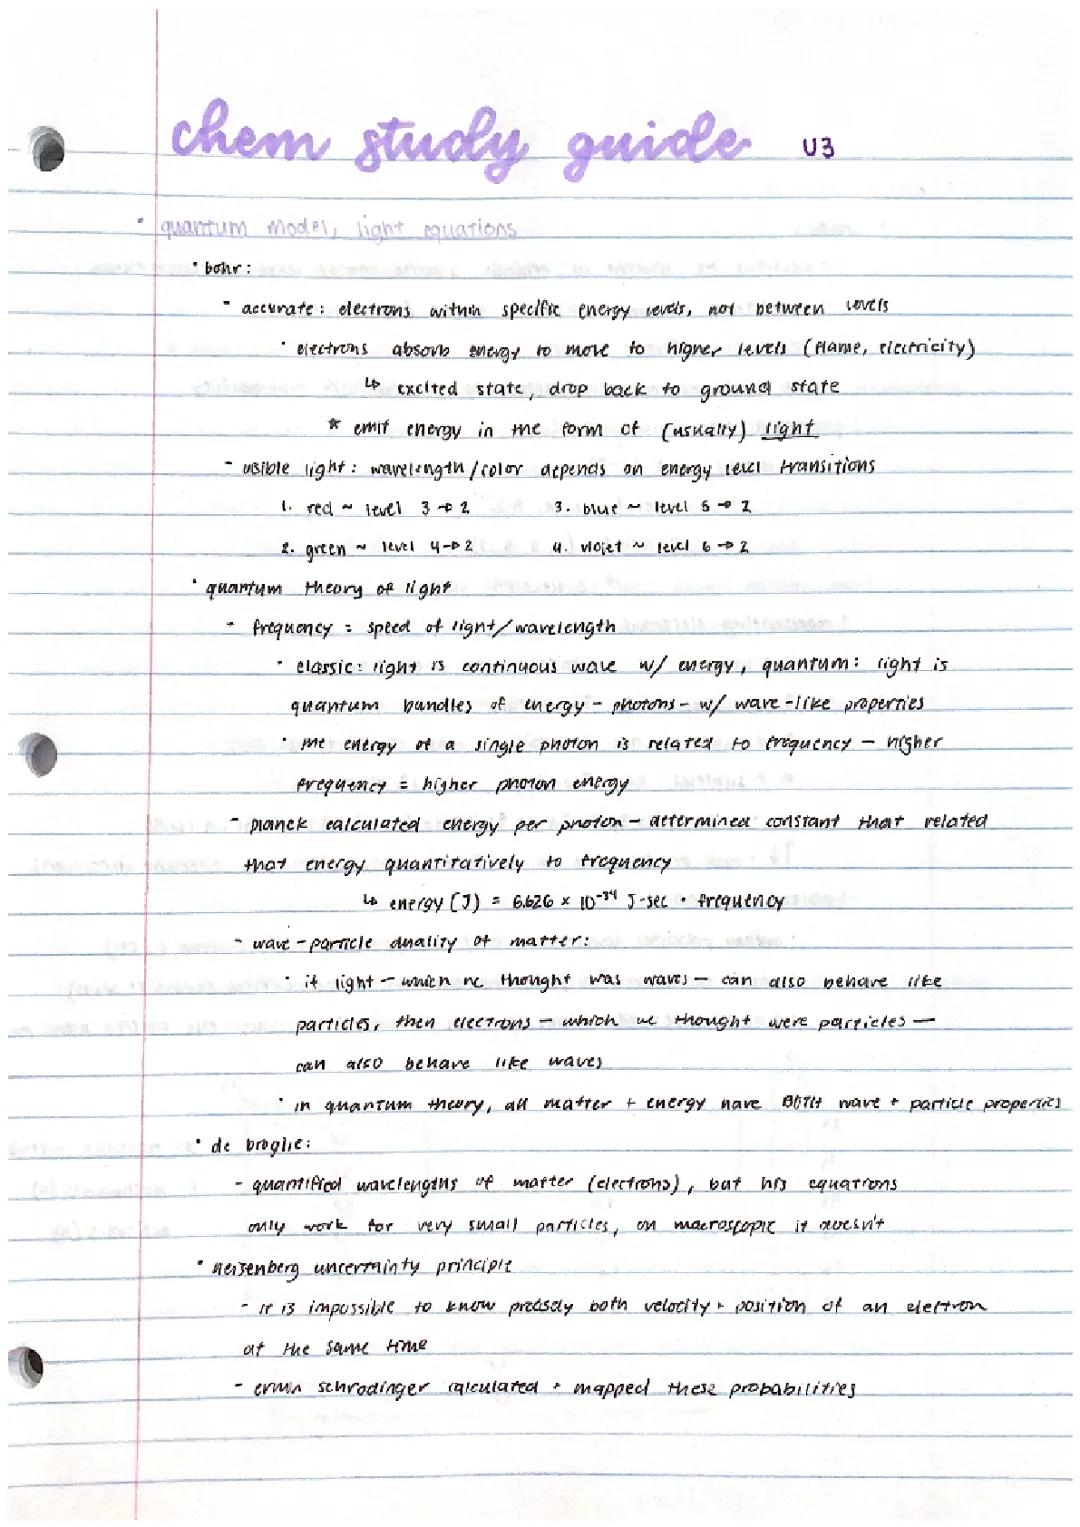 chem study guide U3
· quantum model, light equations
· bohr:
- accurate: electrons within specific energy levels, not between levels
· electrons absorb energy to move to higher levels (flame, electricity)
↳ excited state, drop back to ground state
* emit energy in the form of (usually) light
- visible light: wavelength/color depends on energy level transitions
1. red ~ level 3 → 2 3. blue ~ level 5 → 2
2. green ~ level 4 → 2 4. violet ~ level 6 → 2
· quantum theory of light
- frequency = speed of light/wavelength
· classic: light is continuous wave w/ energy, quantum: light is
quantum bundles of energy - photons - w/ wave-like properties
· the energy of a single photon is related to frequency - higher
frequency = higher photon energy
- planck calculated energy per photon - determined constant that related
that energy quantitatively to frequency
↳ energy (J) = 6.626 x 10⁻³⁴ J-sec · frequency
- wave-particle duality of matter:
· if light - which we thought was waves - can also behave like
particles, then electrons - which we thought were particles -
can also behave like waves
· in quantum theory, all matter + energy have BOTH wave + particle properties
· de broglie:
- quantified wavelengths of matter (electrons), but his equations
only work for very small particles, on macroscopic it doesn't
· heisenberg uncertainty principle
- it is impossible to know precisely both velocity + position of an electron
at the same time
- erwin schrodinger calculated + mapped these probabilities